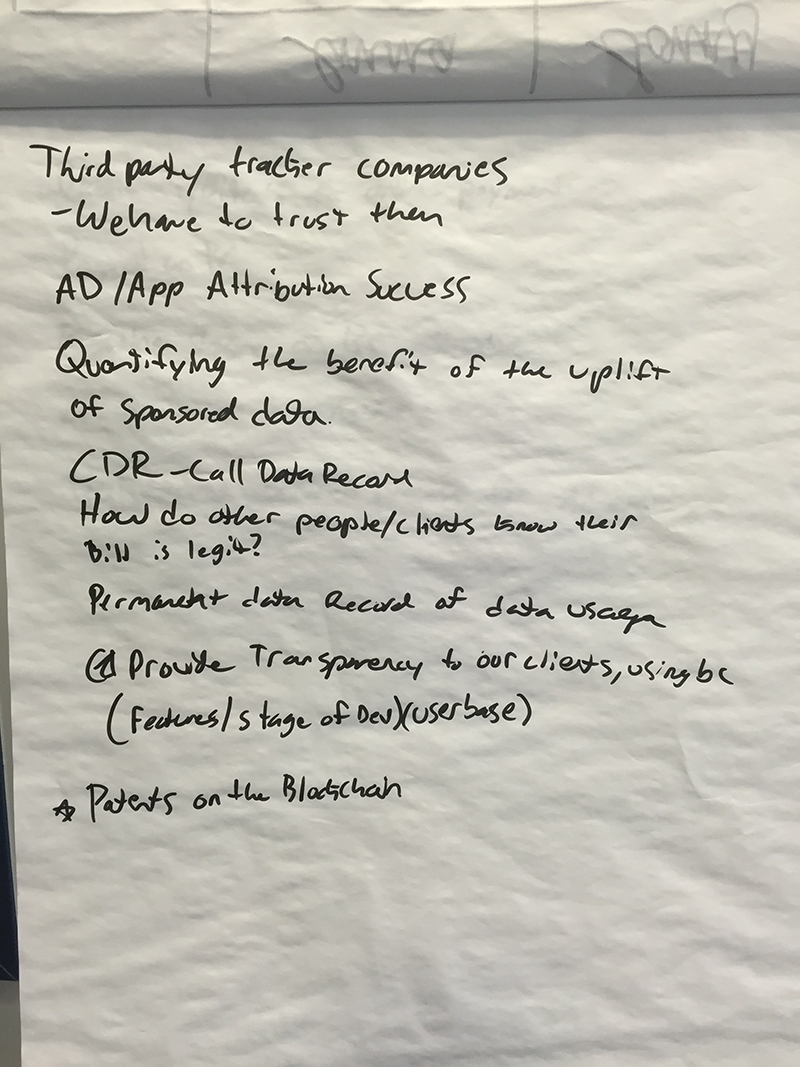 Third party tracker companies
- We have to trust them
AD / App Attribution Success
Quantifying the benefit of the uplift
of sponsored data.
CDR - Call Data Record
How do other people/clients know their
Bill is legit?
Permanent data Record of data usage
Provide Transparency to our clients, using bc
(Features/stage of Dev)(userbase)
☆ Patents on the Blockchain